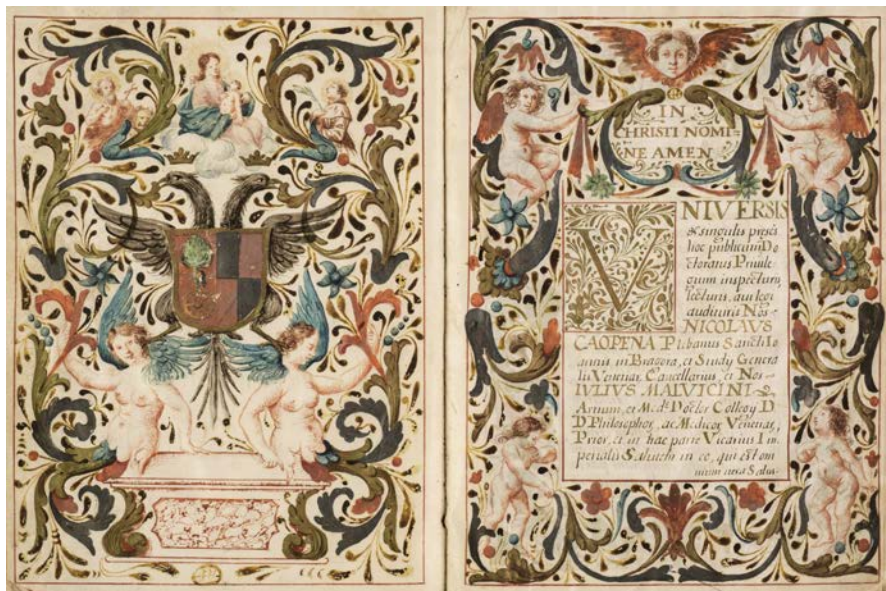 IN
CHRISTI NOMI=
NE AMEN
VNIVERSIS
& singulis presēs
hoc publicum Do
ctoratus Priuile
gium inspecturis,
lecturis, qui legi
audituris Nos
NICOLAVS
CAOPENA Plebanus Sancti Io
annis in Bragora, et Study Genera
lis Venetiar. Cancellarius, et Nos
IVLIVS MALVICINI
Artium, et Med. Doctor Collegij D
D Philosophor, ac Medicor Venetiar,
Prior, et in hac parte Vicarius Im
perialis Salutem in eo, qui est om
nium vera Salus